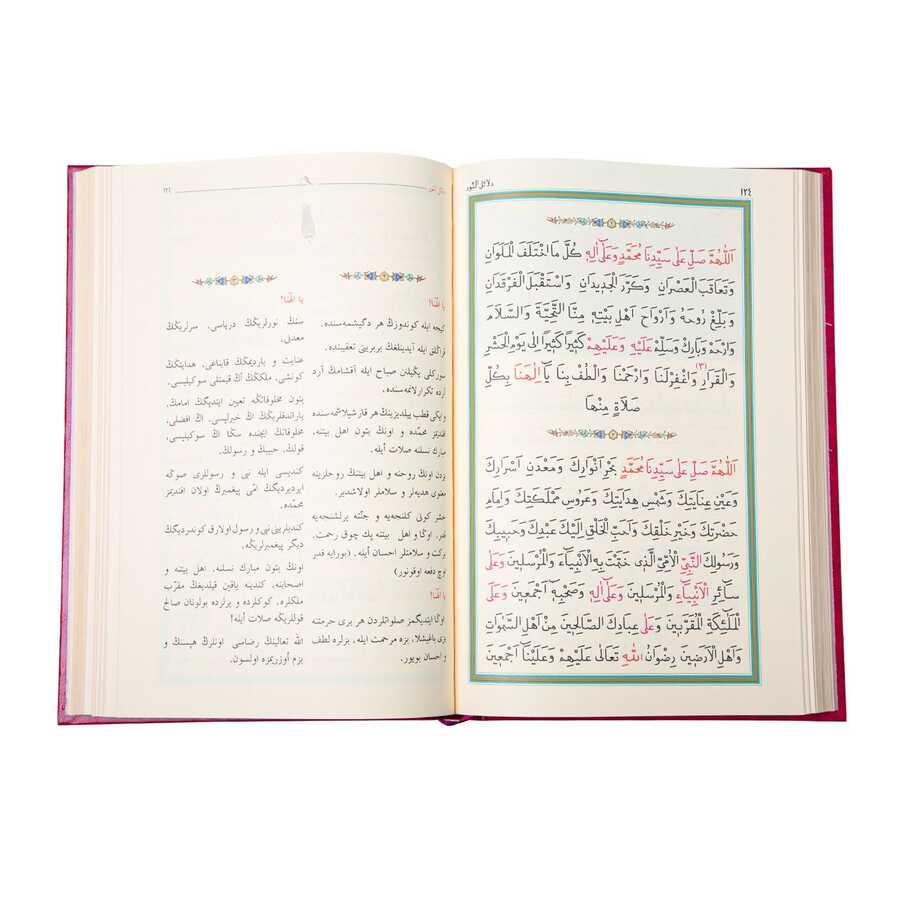 ١٢٤
دلائل النور
اَللّٰهُمَّ صَلِّ عَلٰى سَيِّدِنَا مُحَمَّدٍ وَعَلٰٓى اٰلِهٖ كُلَّ مَا اخْتَلَفَ الْمَلَوَانِ
وَتَعَاقَبَ الْعَصْرَانِ وَكَرَّرَ الْجَدِيدَانِ وَاسْتَقْبَلَ الْفَرْقَدَانِ
وَبَلِّغْ رُوحَهُ وَاَرْوَاحَ اَهْلِ بَيْتِهٖ مِنَّا التَّحِيَّةَ وَالسَّلَامَ
وَارْحَمْ وَبَارِكْ وَسَلِّمْ عَلَيْهِ وَعَلَيْهِمْ كَثِيرًا كَثِيرًا اِلٰى يَوْمِ الْحَشْرِ
وَالْقَرَارِ (٣) وَاغْفِرْلَنَا وَارْحَمْنَا وَالْطُفْ بِنَا يَٓا اِلٰهَنَا بِكُلِّ
صَلَاةٍ مِنْهَا
اَللّٰهُمَّ صَلِّ عَلٰى سَيِّدِنَا مُحَمَّدٍ بَحْرِ اَنْوَارِكَ وَمَعْدَنِ اَسْرَارِكَ
وَعَيْنِ عِنَايَتِكَ وَشَمْسِ هِدَايَتِكَ وَعَرُوسِ مَمْلَكَتِكَ وَاِمَامِ
حَضْرَتِكَ وَخَيْرِ خَلْقِكَ وَاَحَبِّ الْخَلْقِ اِلَيْكَ عَبْدِكَ وَحَبِيبِكَ
وَرَسُولِكَ النَّبِيِّ الْاُمِّيِّ الَّذِي خَتَمْتَ بِهِ الْاَنْبِيَٓاءَ وَالْمُرْسَلِينَ وَعَلٰى
سَٓائِرِ الْاَنْبِيَٓاءِ وَالْمُرْسَلِينَ وَعَلٰٓى اٰلِهٖ وَصَحْبِهٖٓ اَجْمَعِينَ وَعَلَى
الْمَلٰٓئِكَةِ الْمُقَرَّبِينَ وَعَلٰى عِبَادِكَ الصَّالِحِينَ مِنْ اَهْلِ السَّمٰوَاتِ
وَاَهْلِ الْاَرَضِينَ رِضْوَانُ اللّٰهِ تَعَالٰى عَلَيْهِمْ وَعَلَيْنَٓا اَجْمَعِينَ
دلائل النور
١٢٤
يا الهنا!
كيجه ايله كوندوزڭ هر دگيشمه سنده،
قراڭلق ايله آيدينلغڭ بربريني تعقيبنده،
سوركلى يڭيلن صباح ايله آقشامڭ آرد
آرده تكرارلانمه سنده،
و ايكى قطب ييلديزينڭ هر قارشيلاشمه سنده
افنديمز محمّده و اونڭ بتون اهل بيتنه،
مبارك نسلنه صلات أيله.
بزدن اونڭ روحنه و اهل بيتنڭ روحلرينه
معنوى هديه لر و سلاملر اولاشدير.
حشر كونى كلنجه يه و جنّته يرلشنجه يه
قدر، اوڭا و اهل بيتنه پك چوق رحمت،
بركت و سلامتلر احسان أيله. (بورايه قدر
اوچ دفعه اوقونور)
يا الهنا!
اوڭا ايتديگمز صلواتلردن هر برى حرمتنه
بزى باغيشلا، بزه مرحمت ايله، بزلره لطف
و احسان بويور.
يا الهنا!
سنڭ نورلريڭڭ درياسى، سرلريڭڭ
معدنى،
عنايت و يارديمڭڭ قايناغى، هدايتڭڭ
كونشى، ملكڭڭ اڭ قيمتلى سوكيليسى،
بتون مخلوقاتڭه تعيين ايتديگڭ امامڭ،
ياراتدقلريڭڭ اڭ خيرليسى، اڭ افضلى،
مخلوقاتڭ ايچنده سڭا اڭ سوكيليسى،
قولڭ، حبيبڭ و رسولڭ،
كنديسى ايله نبى و رسوللرى صوڭه
ايرديرديگڭ امّى پيغمبرڭ اولان افنديمز
محمّده،
كنديلرينى نبى و رسول اولارق كوندرديگڭ
ديگر پيغمبرلريڭه،
اونڭ بتون مبارك نسلنه، اهل بيتنه و
اصحابنه، كندينه ياقين قيلديغڭ مقرّب
ملكلره، كوكلرده و يرلرده بولونان صالح
قوللريڭه صلات أيله!
الله تعالينڭ رضاسى اونلرڭ هپسنڭ و
بزم اوزريمزه اولسون.